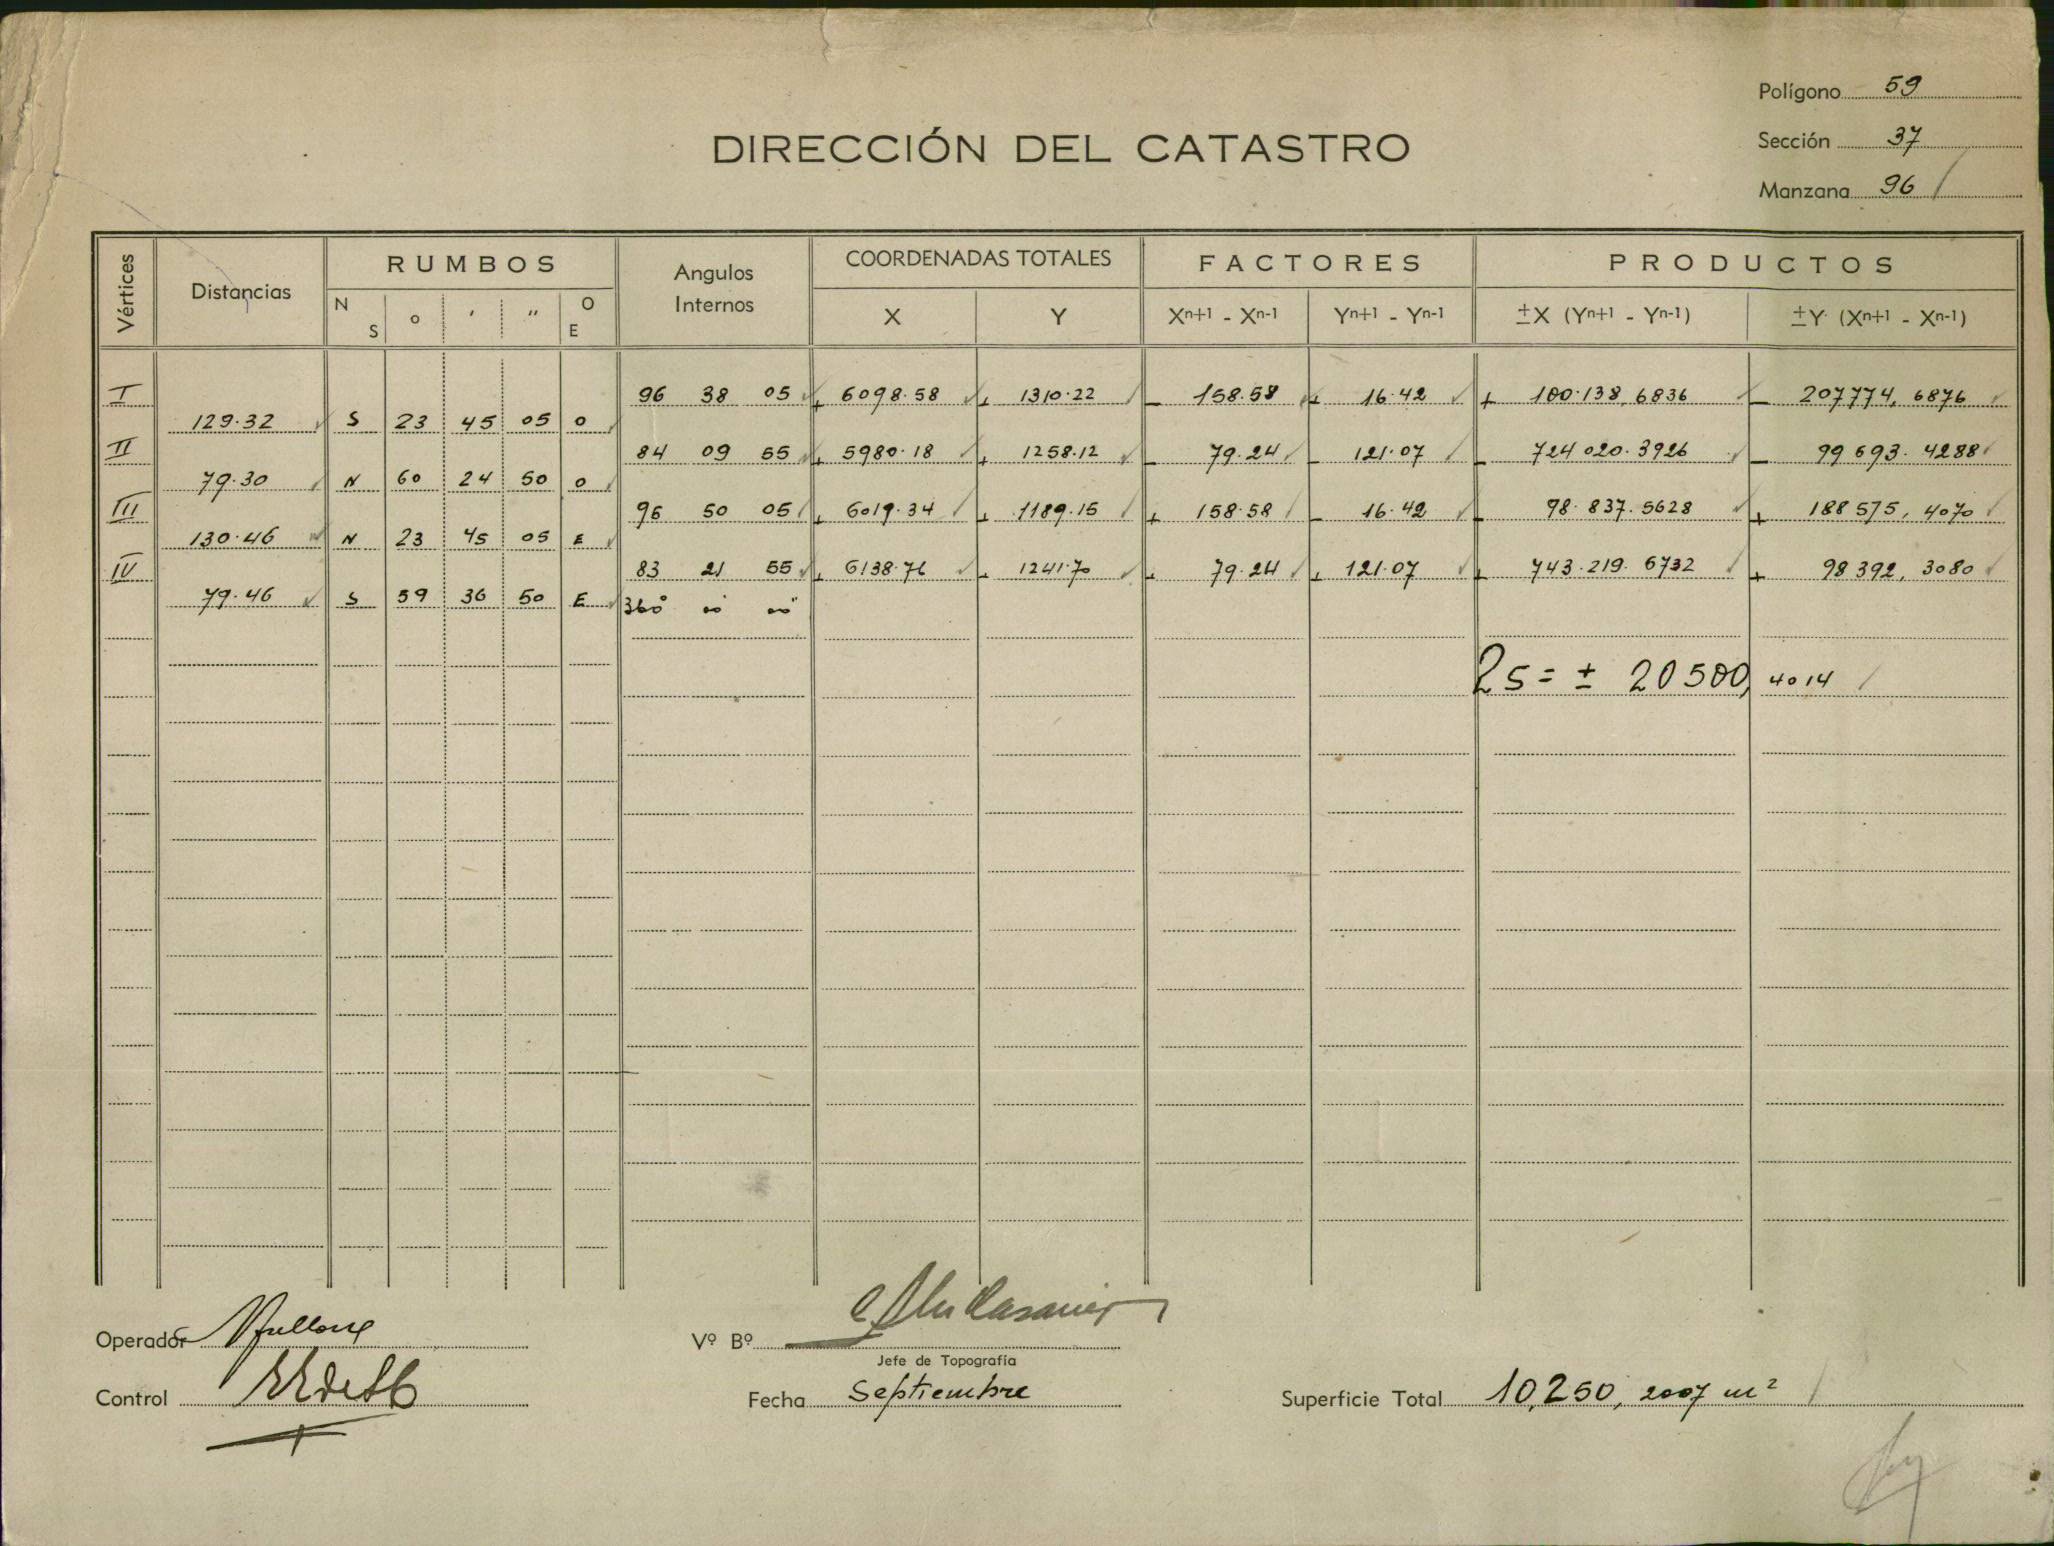 Polígono 59
DIRECCIÓN DEL CATASTRO
Sección 37
Manzana 96 /
Vértices Distancias RUMBOS Angulos Internos COORDENADAS TOTALES FACTORES PRODUCTOS
N S o ′ ″ O E X Y Xn+1 - Xn-1 Yn+1 - Yn-1 ±X (Yn+1 - Yn-1) ±Y (Xn+1 - Xn-1)
I 96 38 05 + 6098.58 + 1310.22 - 158.58 + 16.42 + 100.138,6836 - 207774,6876
129.32 S 23 45 05 O
II 84 09 55 + 5980.18 + 1258.12 - 79.24 - 121.07 - 724020.3926 - 99693.4288
79.30 N 60 24 50 O
III 95 50 05 + 6019.34 + 1189.15 + 158.58 - 16.42 - 98.837.5628 + 188575,4070
130.46 N 23 45 05 E
IV 83 21 55 + 6138.76 + 1241.70 + 79.24 + 121.07 + 743.219.6732 + 98392,3080
79.46 S 59 36 50 E
360° 00′ 00″
2S = ± 20500,4014
Operador
Vº Bº
Jefe de Topografía
Control
Fecha Septiembre
Superficie Total 10,250,2007 m²